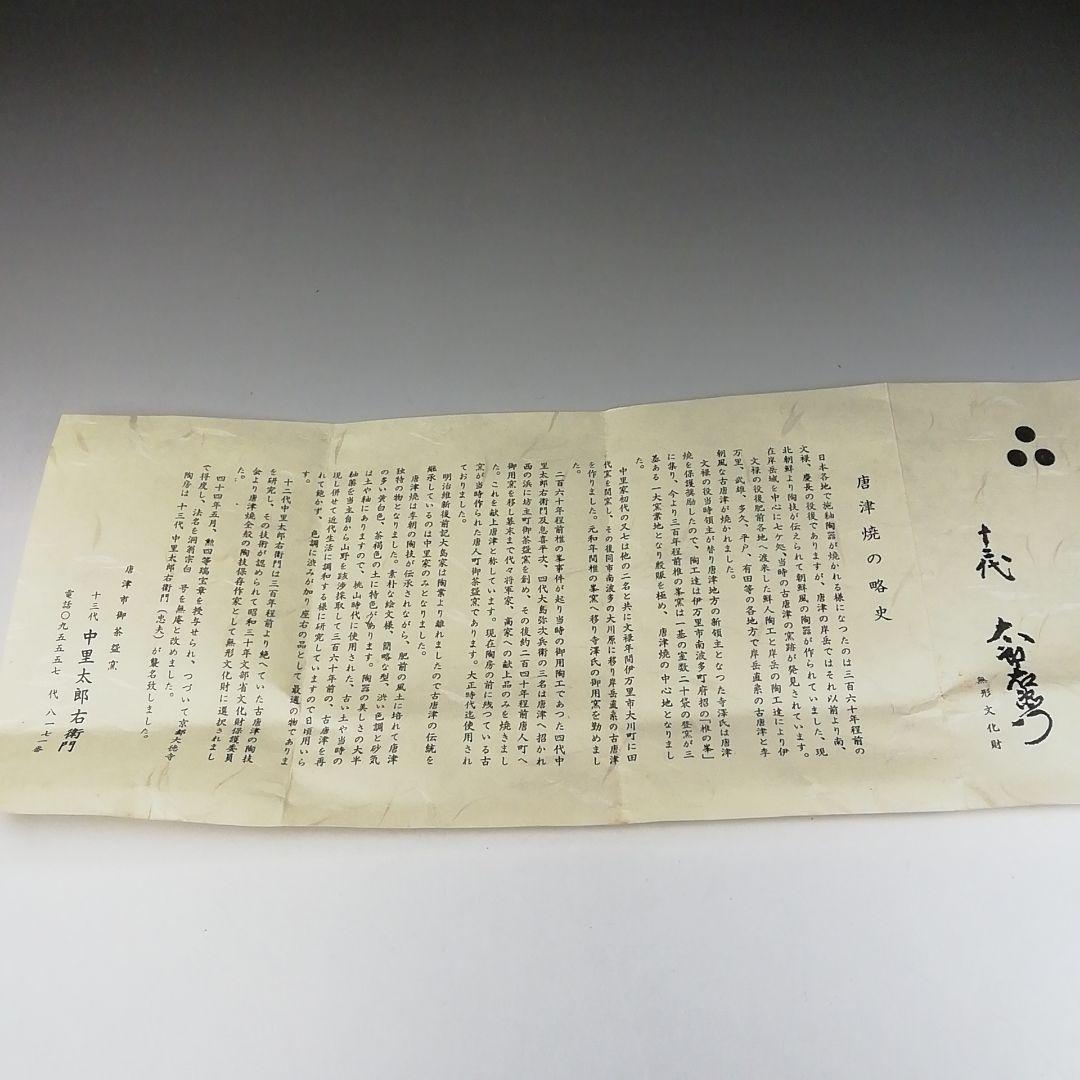 十三代
太郎右衛門
無形文化財
唐津焼の略史
日本各地で施釉陶器が焼かれる様になつたのは三百六十年程前の
文禄、慶長の役後でありますが、唐津の岸岳ではそれ以前より南、
北朝鮮より陶技が伝えられて朝鮮風の陶器が作られていました、現
在岸岳城を中心に七ケ処、当時の古唐津の窯跡が発見されています。
文禄の役後肥前各地へ渡来した鮮人陶工と岸岳の陶工達により伊
万里、武雄、多久、平戸、有田等の各地方で岸岳直系の古唐津と李
朝風な古唐津が焼かれました。
文禄の役当時領主が替り唐津地方の新領主となつた寺澤氏は唐津
焼を保護奨励したので、陶工達は伊万里市南波多町府招の「椎の峯」
に集り、今より三百年程前椎の峯窯は一基の室数二十袋の登窯が三
基ある一大窯業地となり殷賑を極め、唐津焼の中心地となりまし
た。
中里家初代の又七は他の二名と共に文禄年間伊万里市大川町に田
代窯を開窯し、その後同市南波多の大川原に移り岸岳直系の古唐津
を作りました。元和年間椎の峯窯へ移り寺澤氏の御用窯を勤めまし
た。
二百六十年程前椎の峯事件が起り当時の御用陶工であつた四代中
里太郎右衛門及息喜平次、四代大島弥次兵衛の三名は唐津へ招かれ
西の浜に坊主町御茶盌窯を創め、その後約二百四十年程前唐人町へ
御用窯を移し幕末まで代々将軍家、高家への献上品のみを焼きまし
た。これを献上唐津と称しています。現在陶房の前に残つている古
窯が当時作られた唐人町御茶盌窯であります。大正時代迄使用され
ておりました。
明治維新後前記大島家は陶業より離れましたので古唐津の伝統を
継承しているのは中里家のみとなりました。
唐津焼は李朝の陶技が伝承されながら、肥前の風土に培れて唐津
独特の物となりました。素朴な絵文様、簡略な型、渋い色調と砂気
の多い黄白色、茶褐色の土に特色があります。陶器の美しさの大半
は土や釉にありますので、桃山時代に使用された、古い土や当時の
釉薬を当主自から山野を跋渉採取して三百六十年前の、古唐津を再
現し併せて近代生活に調和する様に研究していますので日頃用いら
れて飽かず、色調に渋みが加り座右の品として最適の物でありま
す。
十二代中里太郎右衛門は三百年程前より絶へていた古唐津の陶技
を研究し、その技術が認められて昭和三十年文部省文化財保護委員
会より唐津焼全般の陶技保存作家として無形文化財に選択されまし
た。
四十四年五月、勲四等瑞宝章を授与せられ、つづいて京都大徳寺
で得度し、法名を洞翁宗白 号を無庵と改めました。
陶房は、十三代、中里太郎右衛門(忠夫)が襲名致しました。
唐津市御茶盌窯
十三代 中里太郎右衛門
電話〇九五五五七 代 八一七一番